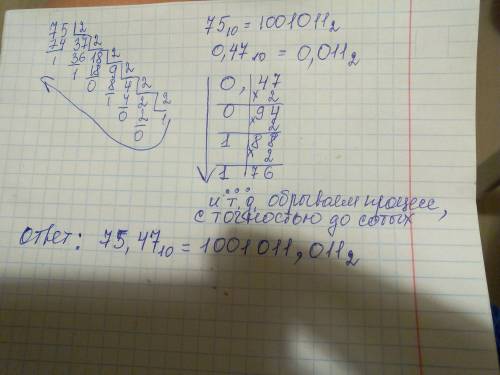 75 |2
74 37 |2
1 36 18 |2
1 18 9 |2
0 8 4 |2
1 4 2 |2
0 2 1
0
75₁₀ = 1001011₂
0,47₁₀ = 0,011₂
0, 47
×2
0 94
×2
1 88
×2
1 76
...
и т.д. обрываем процесс,
с точностью до сотых
ответ: 75,47₁₀ = 1001011,011₂